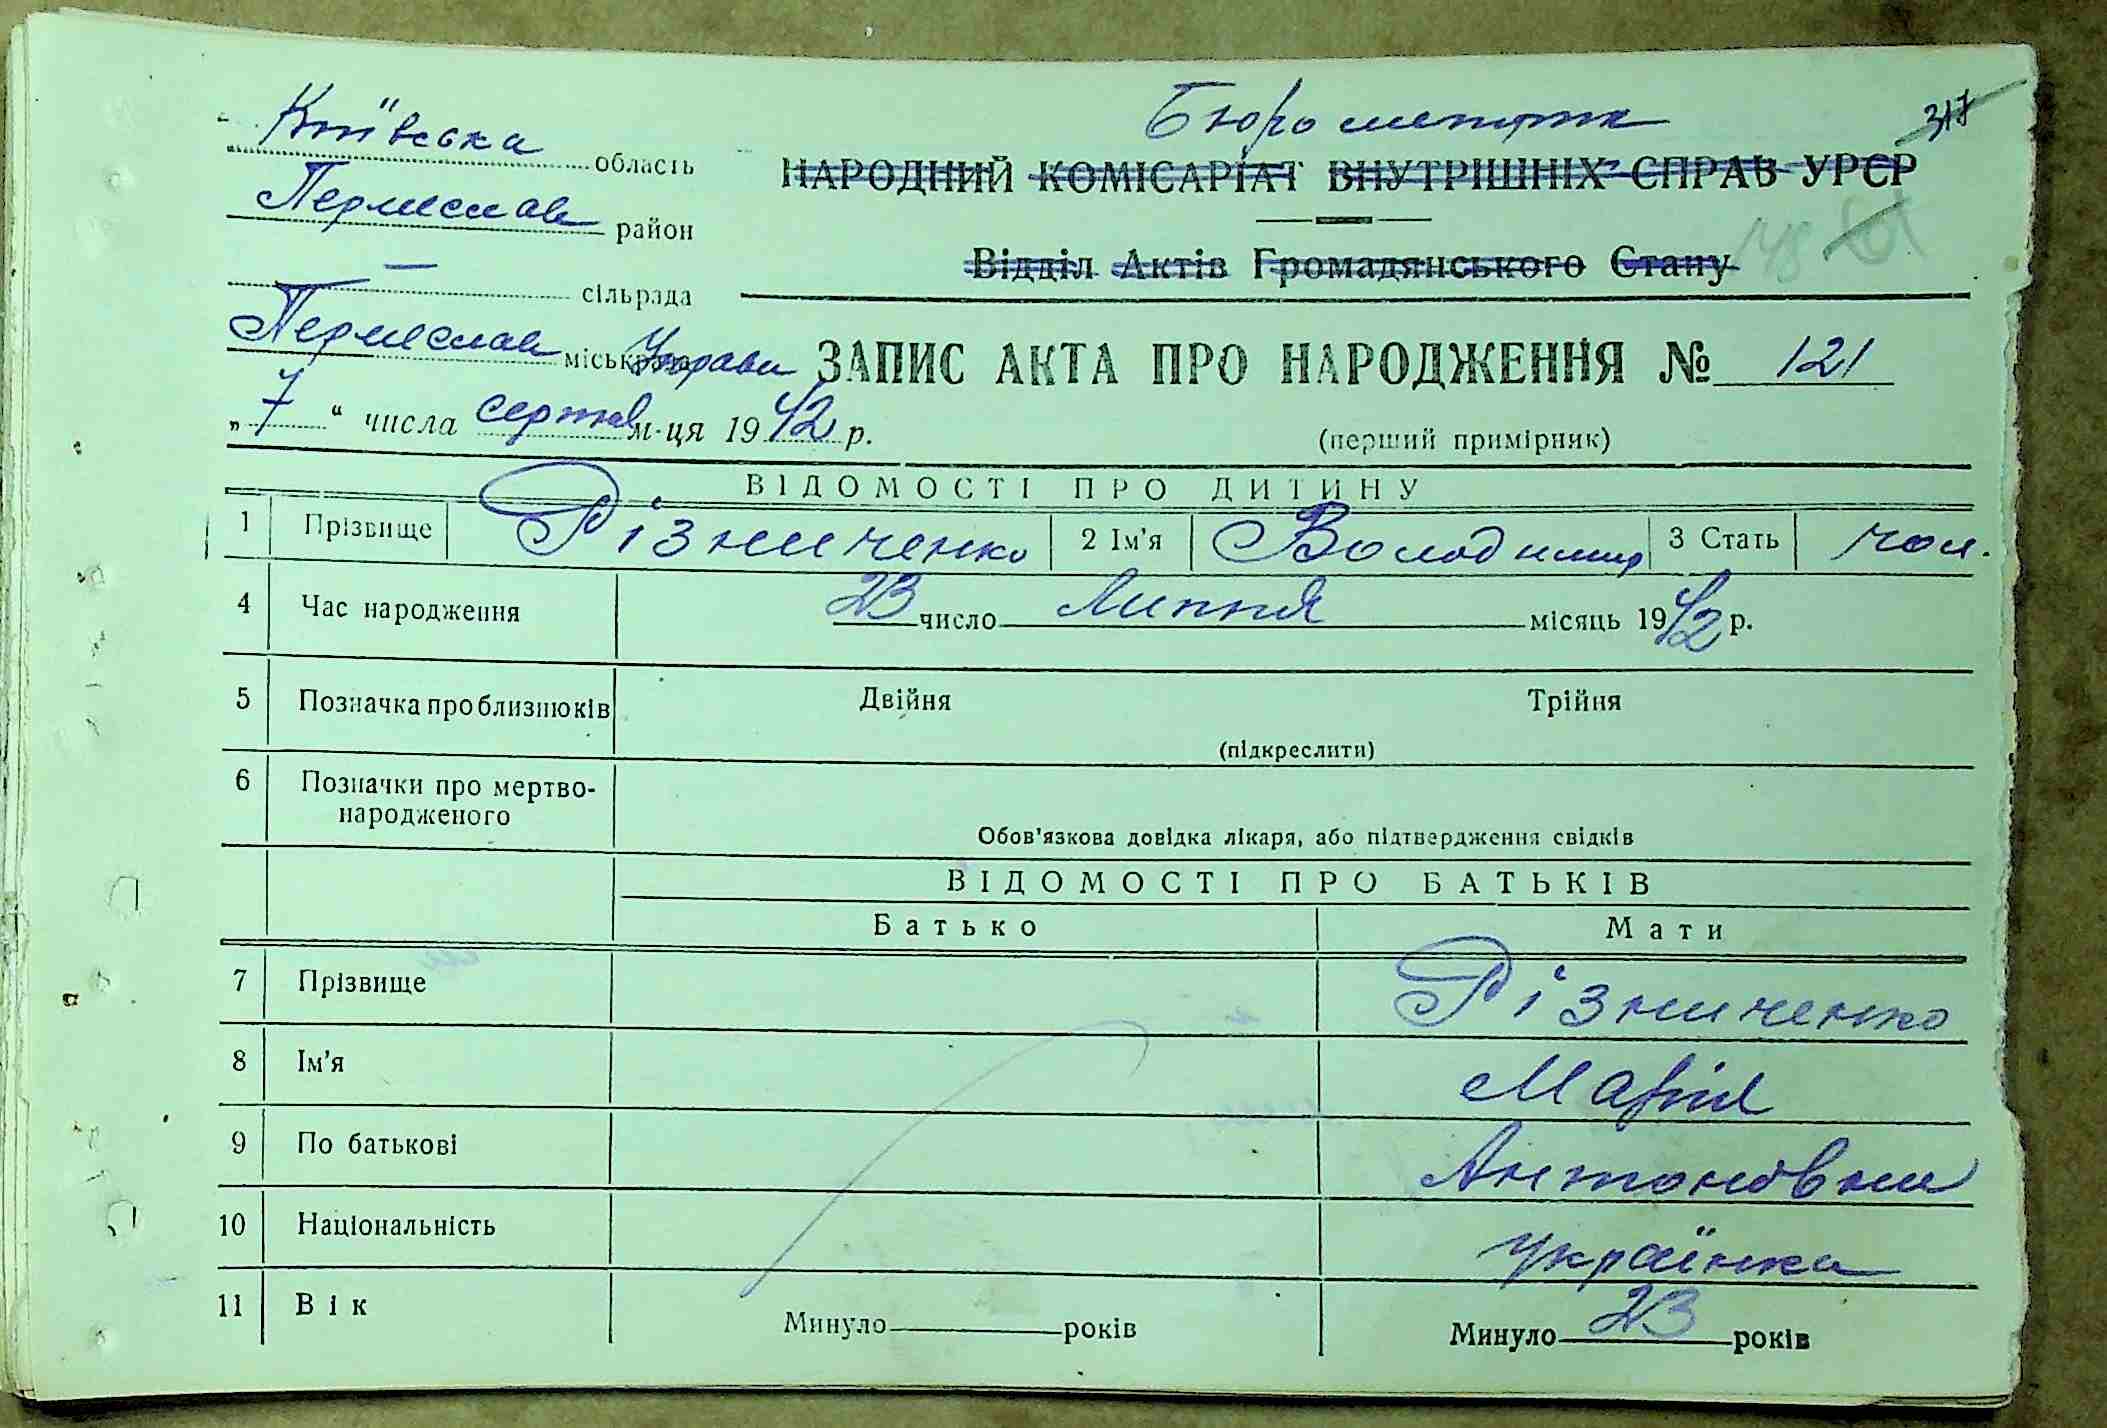 Київська область
Переяслав район
— сільрада
Переяслав Управи
„7“ числа серпня м-ця 1942 р.
Бюро метрик
317
НАРОДНИЙ КОМІСАРІАТ ВНУТРІШНІХ СПРАВ УРСР
148
Відділ Актів Громадянського Стану
ЗАПИС АКТА ПРО НАРОДЖЕННЯ № 121
(перший примірник)
ВІДОМОСТІ ПРО ДИТИНУ
1 Прізвище Різниченко 2 Ім'я Володимир 3 Стать чол.
4 Час народження 23 число Липня місяць 1942 р.
5 Позначка про близнюків Двійня Трійня
(підкреслити)
6 Позначки про мертво-
народженого
Обов'язкова довідка лікаря, або підтвердження свідків
ВІДОМОСТІ ПРО БАТЬКІВ
Батько Мати
7 Прізвище Різниченко
8 Ім'я Марія
9 По батькові Антоновна
10 Національність українка
11 Вік Минуло років Минуло 23 років